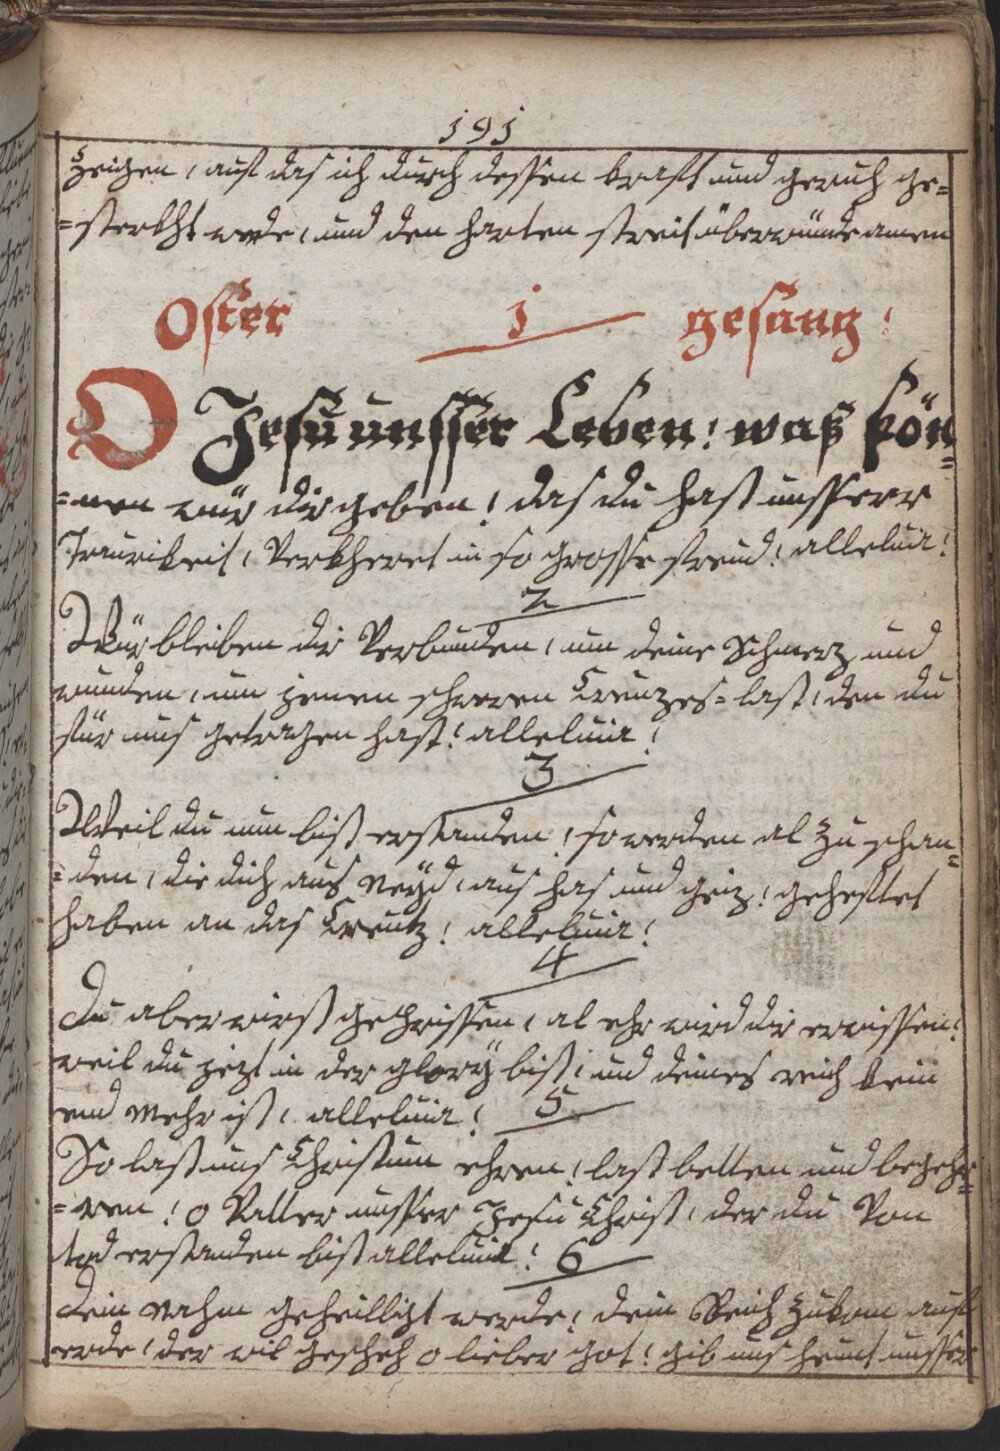 191
zeigen, auf das ich durch dessen kraft und geruch ge=
=sterkht werde, und den harten streit überwünde amen
Oster 1 gesang!
O Jesu unsser Leben! waß kön=
=nen wür dir geben! das du hast unsserr
Traurikeit, Verkheret in so grosse freud! alleluia!
2
Wür bleiben dir Verbunden, um deine Schmerz und
wunden, um jenen schweren Creuzes=last, den du
für uns getragen hast! alleluia!
3
Weil du nun bist erstanden! so werden al zu schan=
=den, die dich aus Neyd, aus has und geiz! geheftet
haben an das Creutz! alleluia!
4
Du aber wirst geprissen, al ehr wird dir erwissen!
weil du jezt in der glory bist, und deines reich kein
end Mehr ist, alleluia! 5
So last uns Christum ehren! last betten und begeh=
=ren! o Vatter unsser Jesu Christ, der du Von
tod erstanden bist alleluia! 6
Dein Nahm geheilligt werde! dein Reich zukom auf
erde! der wil gescheh o lieber got! gib uns heunt unsser